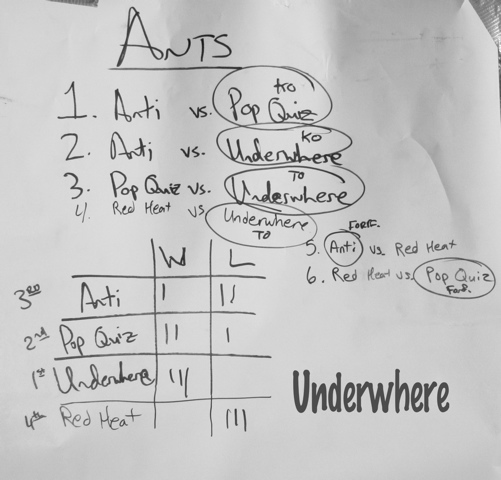 ANTS
1. Anti vs. Pop Quiz TKO
2. Anti vs. Underwhere KO
3. Pop Quiz vs. Underwhere TO
4. Red Heat vs Underwhere TO
5. Anti vs. Red Heat FORF.
6. Red Heat vs. Pop Quiz Forf.
W L
3RD Anti I II
2nd Pop Quiz II I
1st Underwhere III
4th Red Heat III
Underwhere